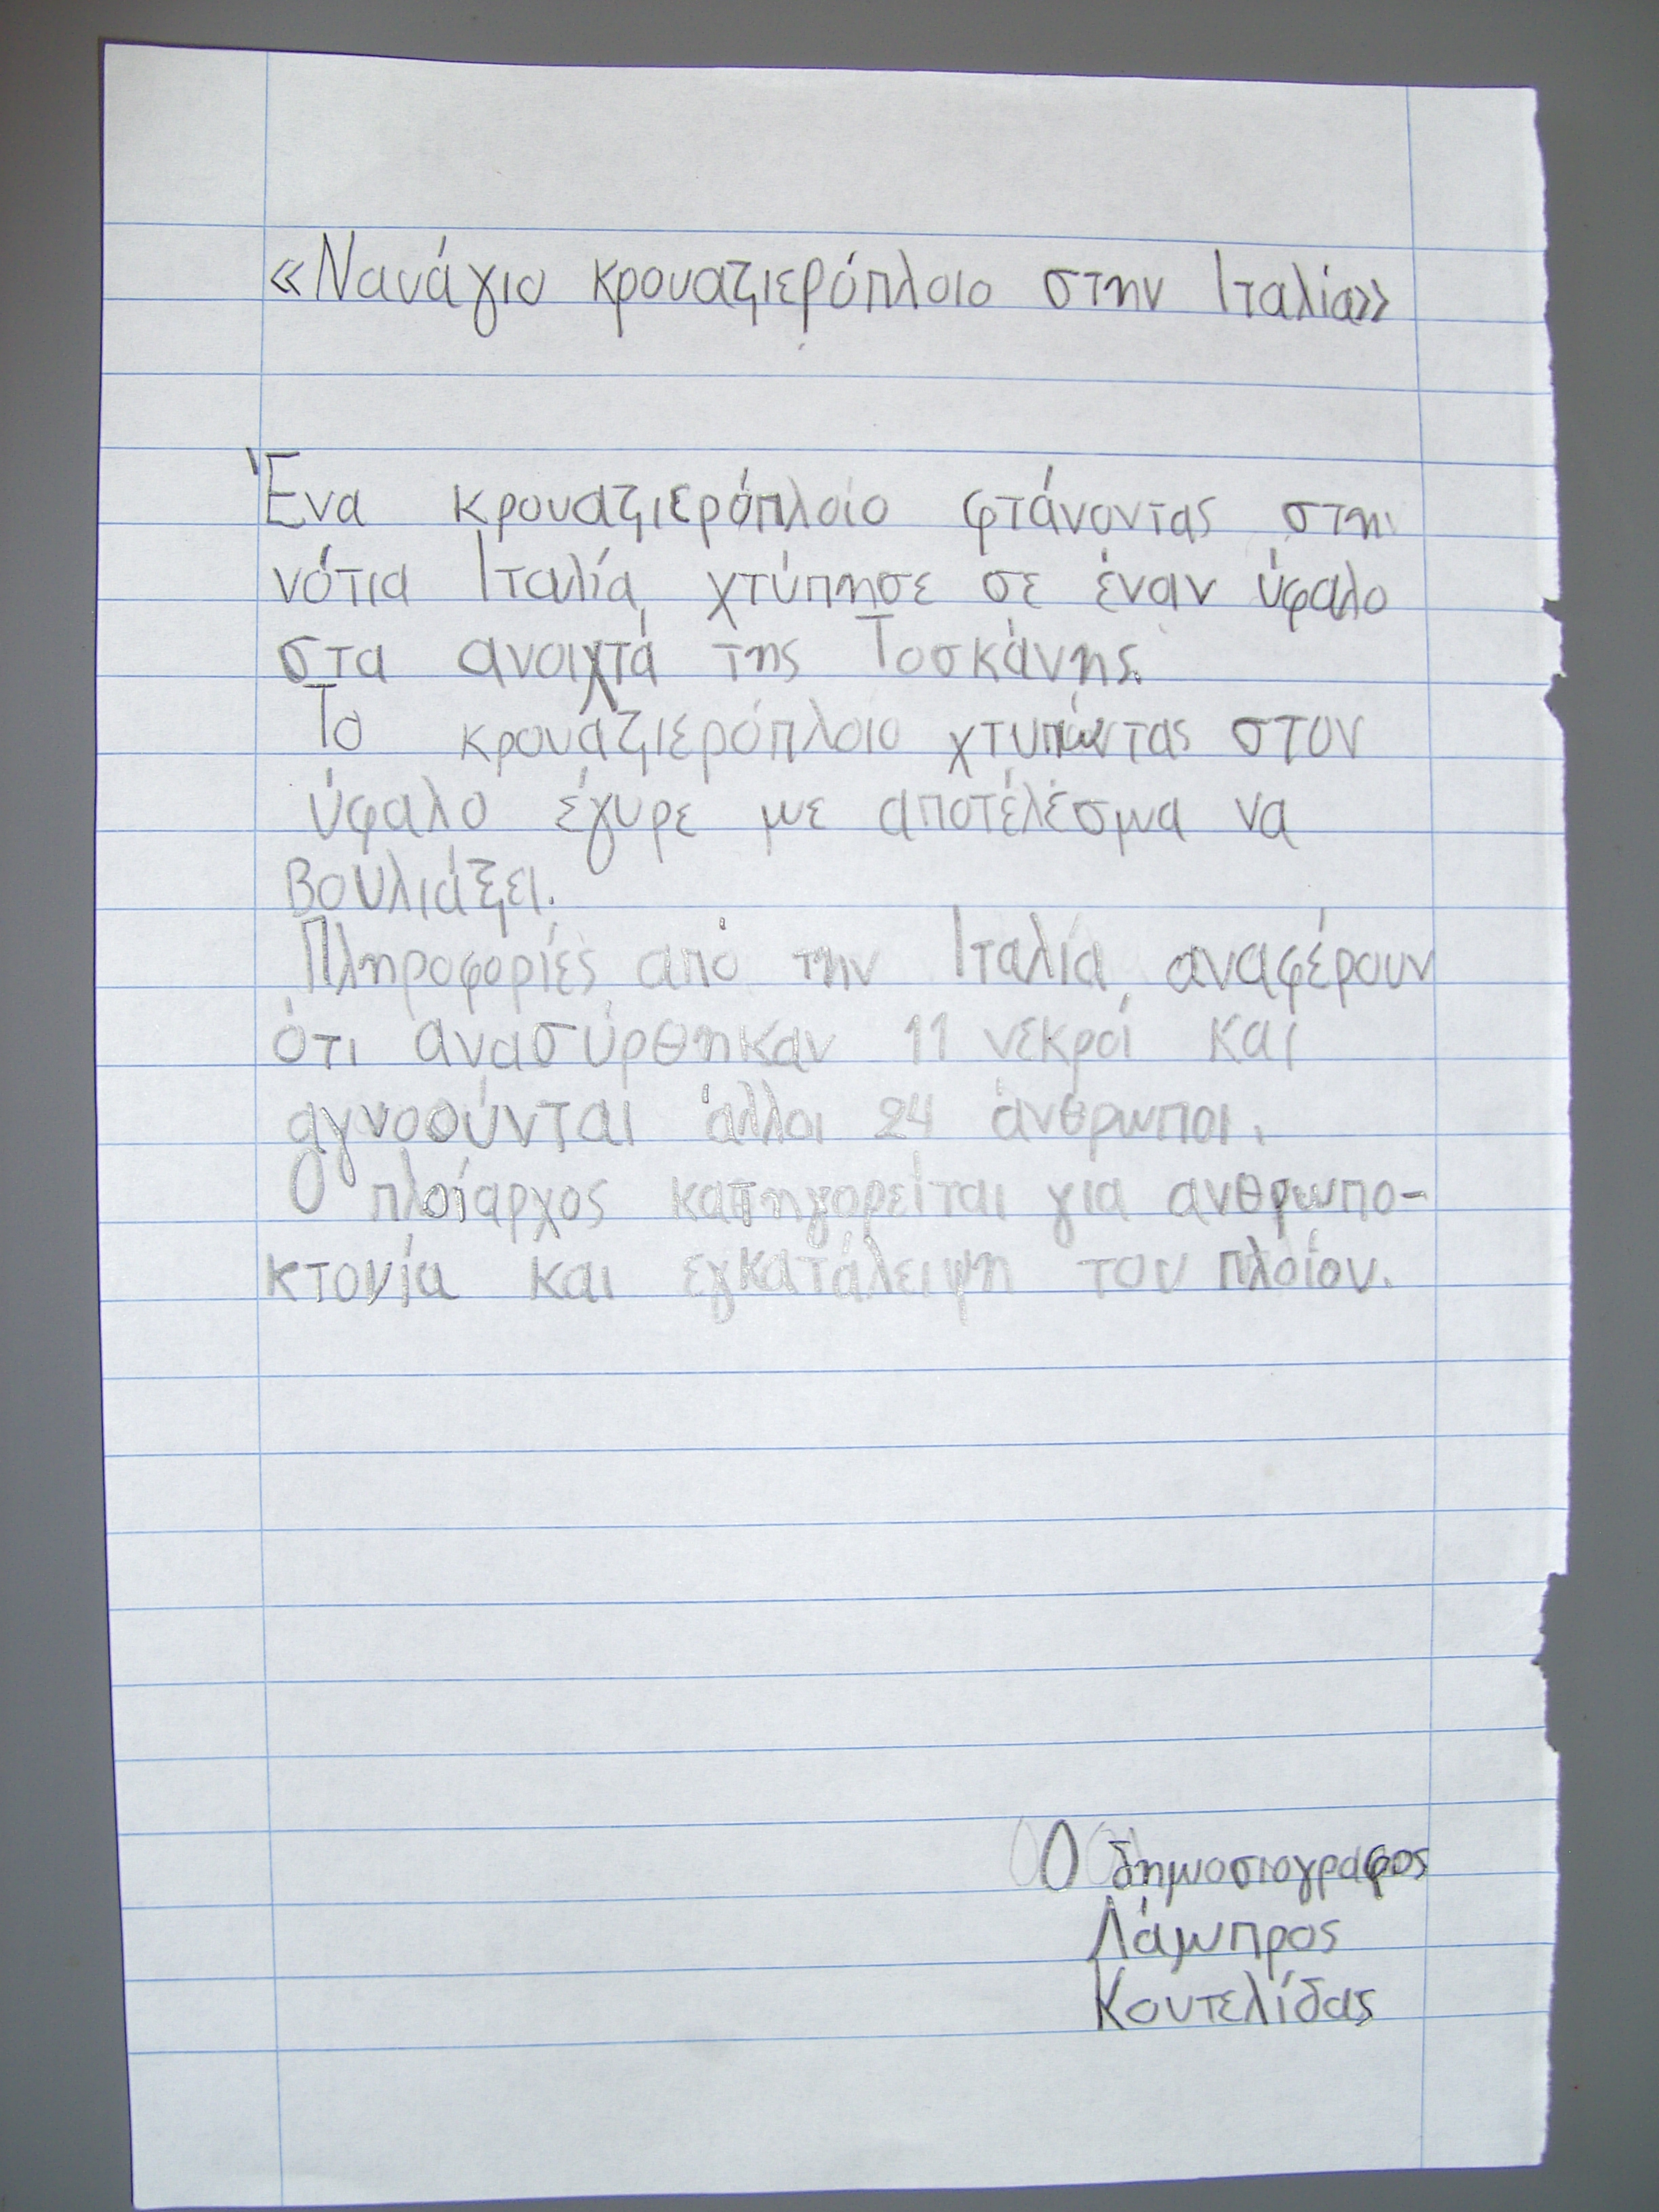 «Ναυάγιο κρουαζιερόπλοιο στην Ιταλία»
Ένα κρουαζιερόπλοιο φτάνοντας στην
νότια Ιταλία, χτύπησε σε έναν ύφαλο
στα ανοιχτά της Τοσκάνης.
Το κρουαζιερόπλοιο χτυπώντας στον
ύφαλο έγυρε με αποτέλεσμα να
βουλιάξει.
Πληροφορίες από την Ιταλία, αναφέρουν
ότι ανασύρθηκαν 11 νεκροί και
αγνοούνται άλλοι 24 άνθρωποι.
Ο πλοίαρχος κατηγορείται για ανθρωπο-
κτονία και εγκατάλειψη του πλοίου.
Ο δημοσιογραφος
Λάμπρος
Κουτελίδας